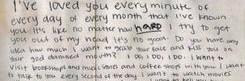 I've loved you every minute of
every day of every month that I've known
you. It's like no matter how hard I try to get
you out of my head it's no good. Do you have any
idea how much I want to grab your face and kiss you on
your god damned mouth? I do, I do, I do. I want to
visit bookshops and music stores and coffee shops with you. I want
to talk to you every second of the day. I want to watch movies